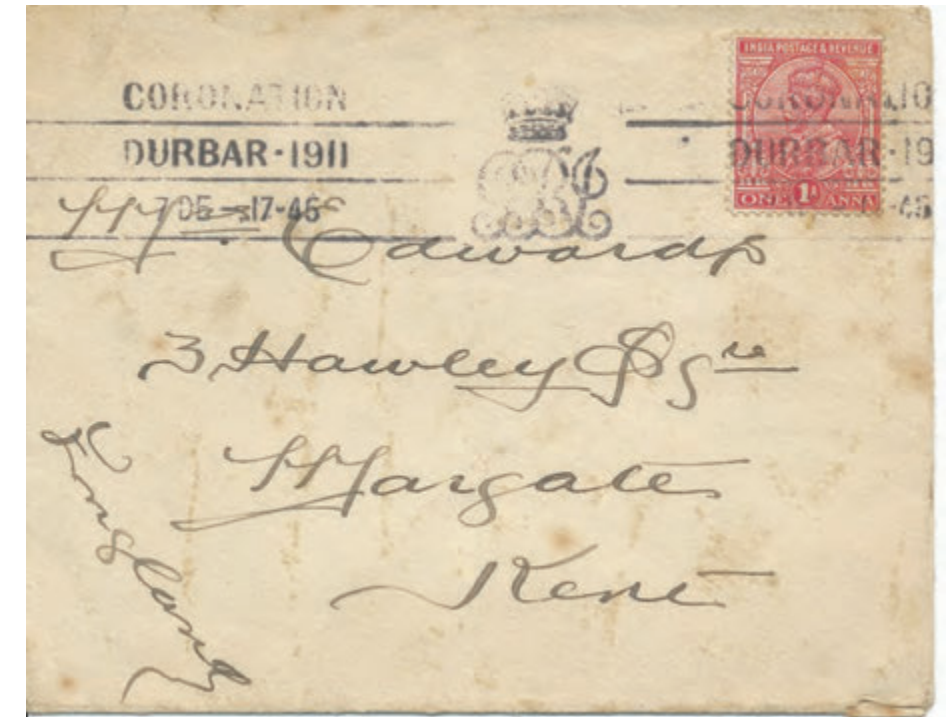 CORONATION
DURBAR · 1911
7 DE 17-45
INDIA POSTAGE & REVENUE
ONE 1A ANNA
CORONATIO
DURBAR · 19
-45
Edwards
3 Hawley Sqre
Margate
Kent
England